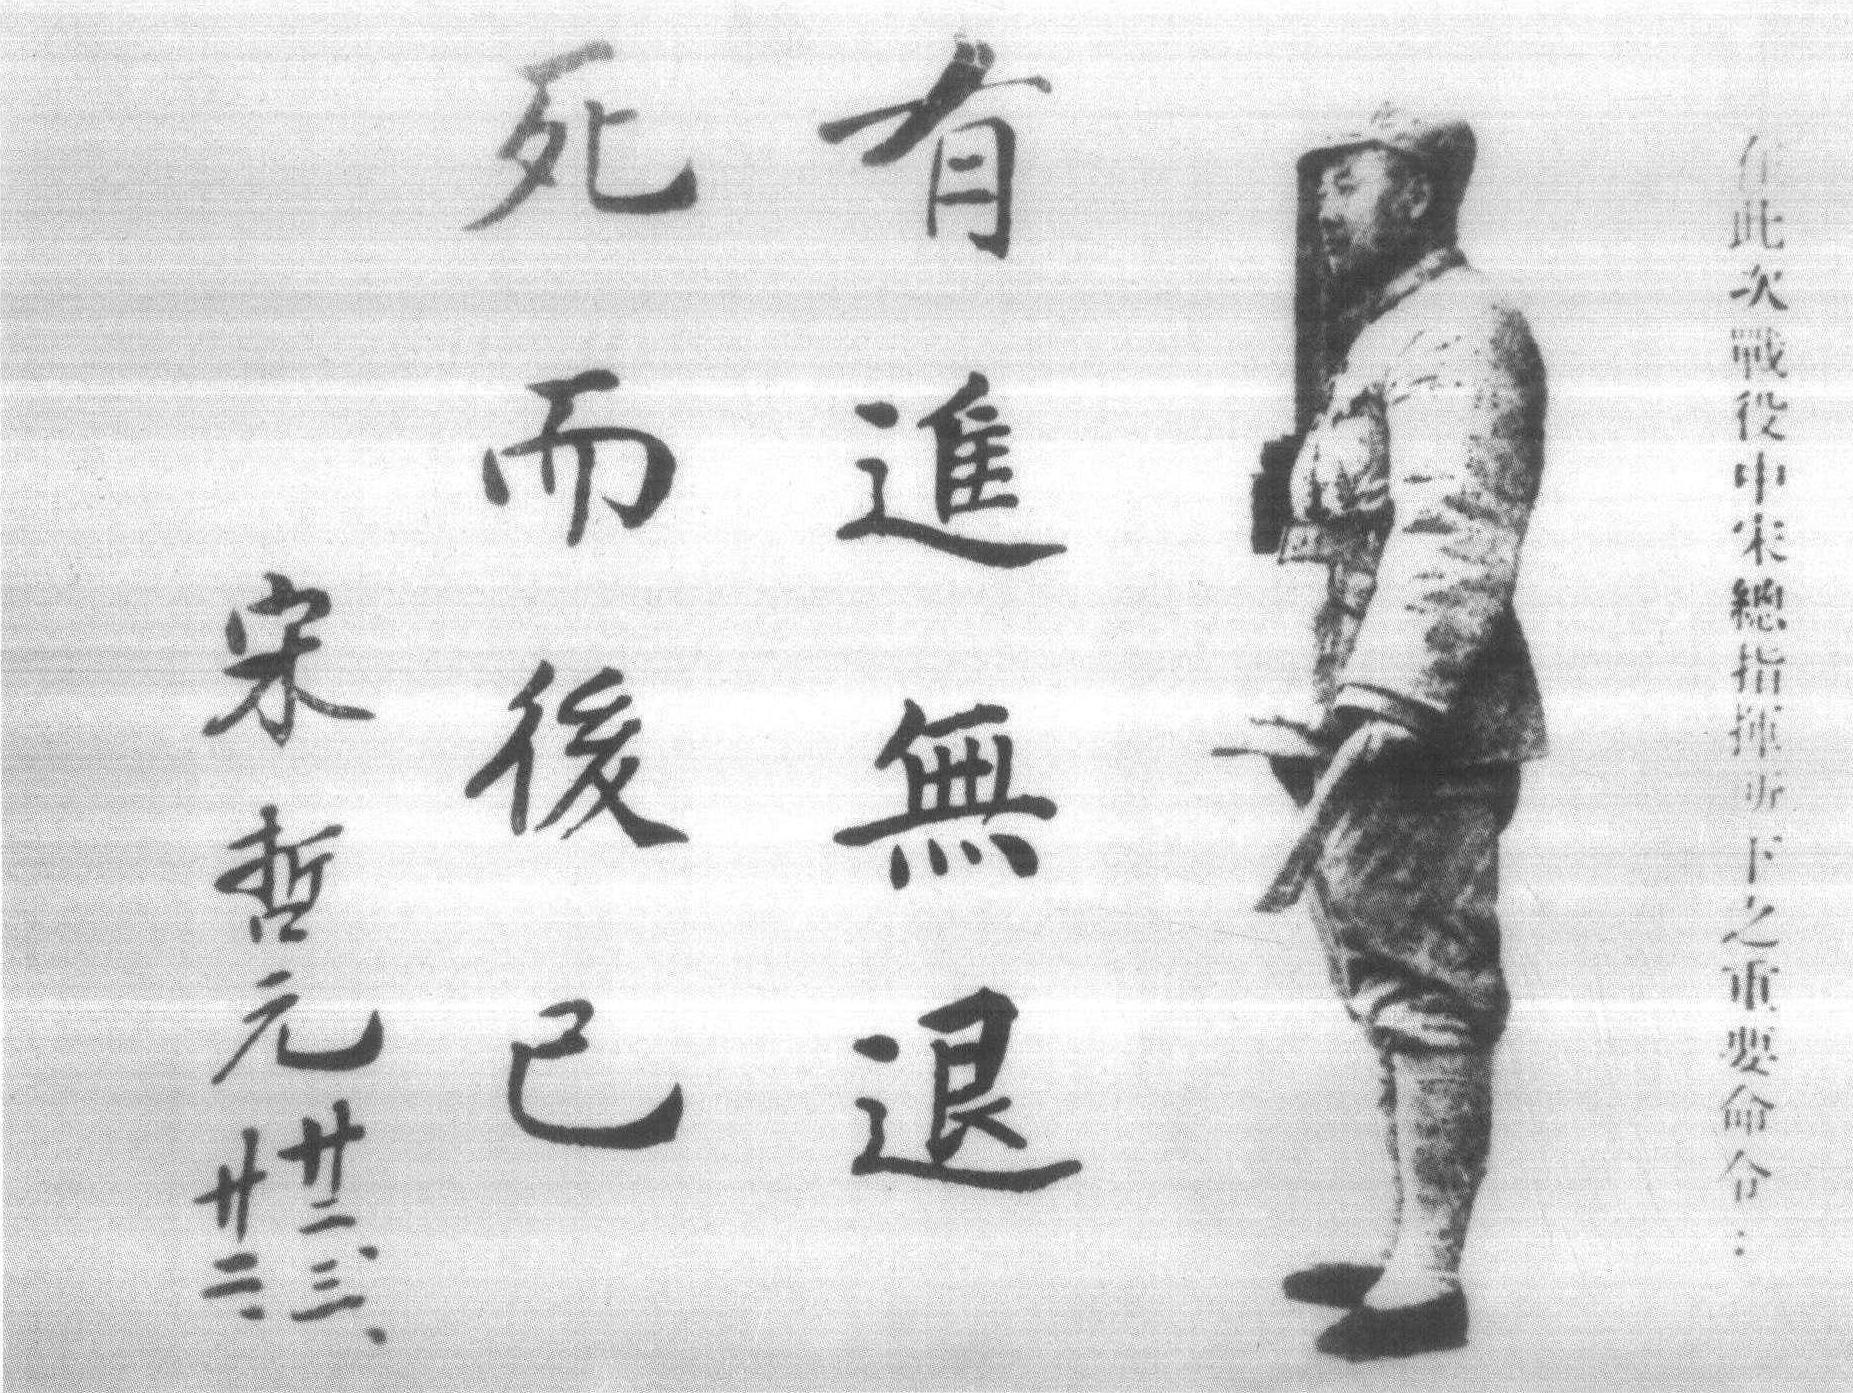 在此次戰役中宋總指揮所下之重要命令：
有進無退
死而後已
宋哲元廿二、三、
廿二、